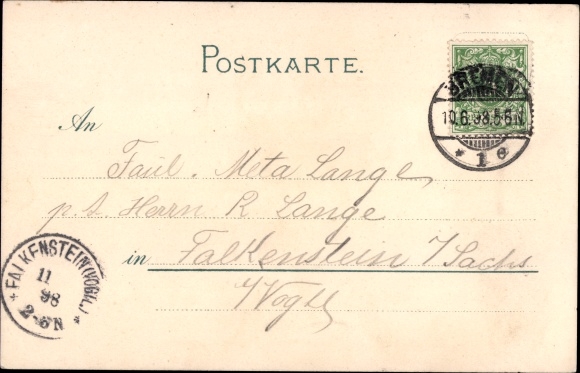 POSTKARTE.
BREMEN
10.6.98.5-6N.
* 1 e
An
Fräul. Meta Lange
p. A. Herrn R Lange
in Falkenstein i/Sachs
i/Vogtl
FALKENSTEIN (VOGTL.)
11
98
2-6N